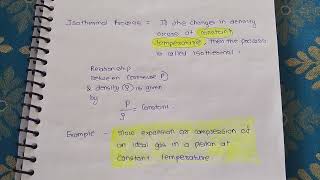 Isothermal Process = If the changes in density
occurs at constant
temperature, then the process
is called isothermal.
Relationship
between pressure P
& density ρ is given
by P/ρ = constant.
Example - Slow expansion or compression of
an ideal gas in a piston at
constant temperature.